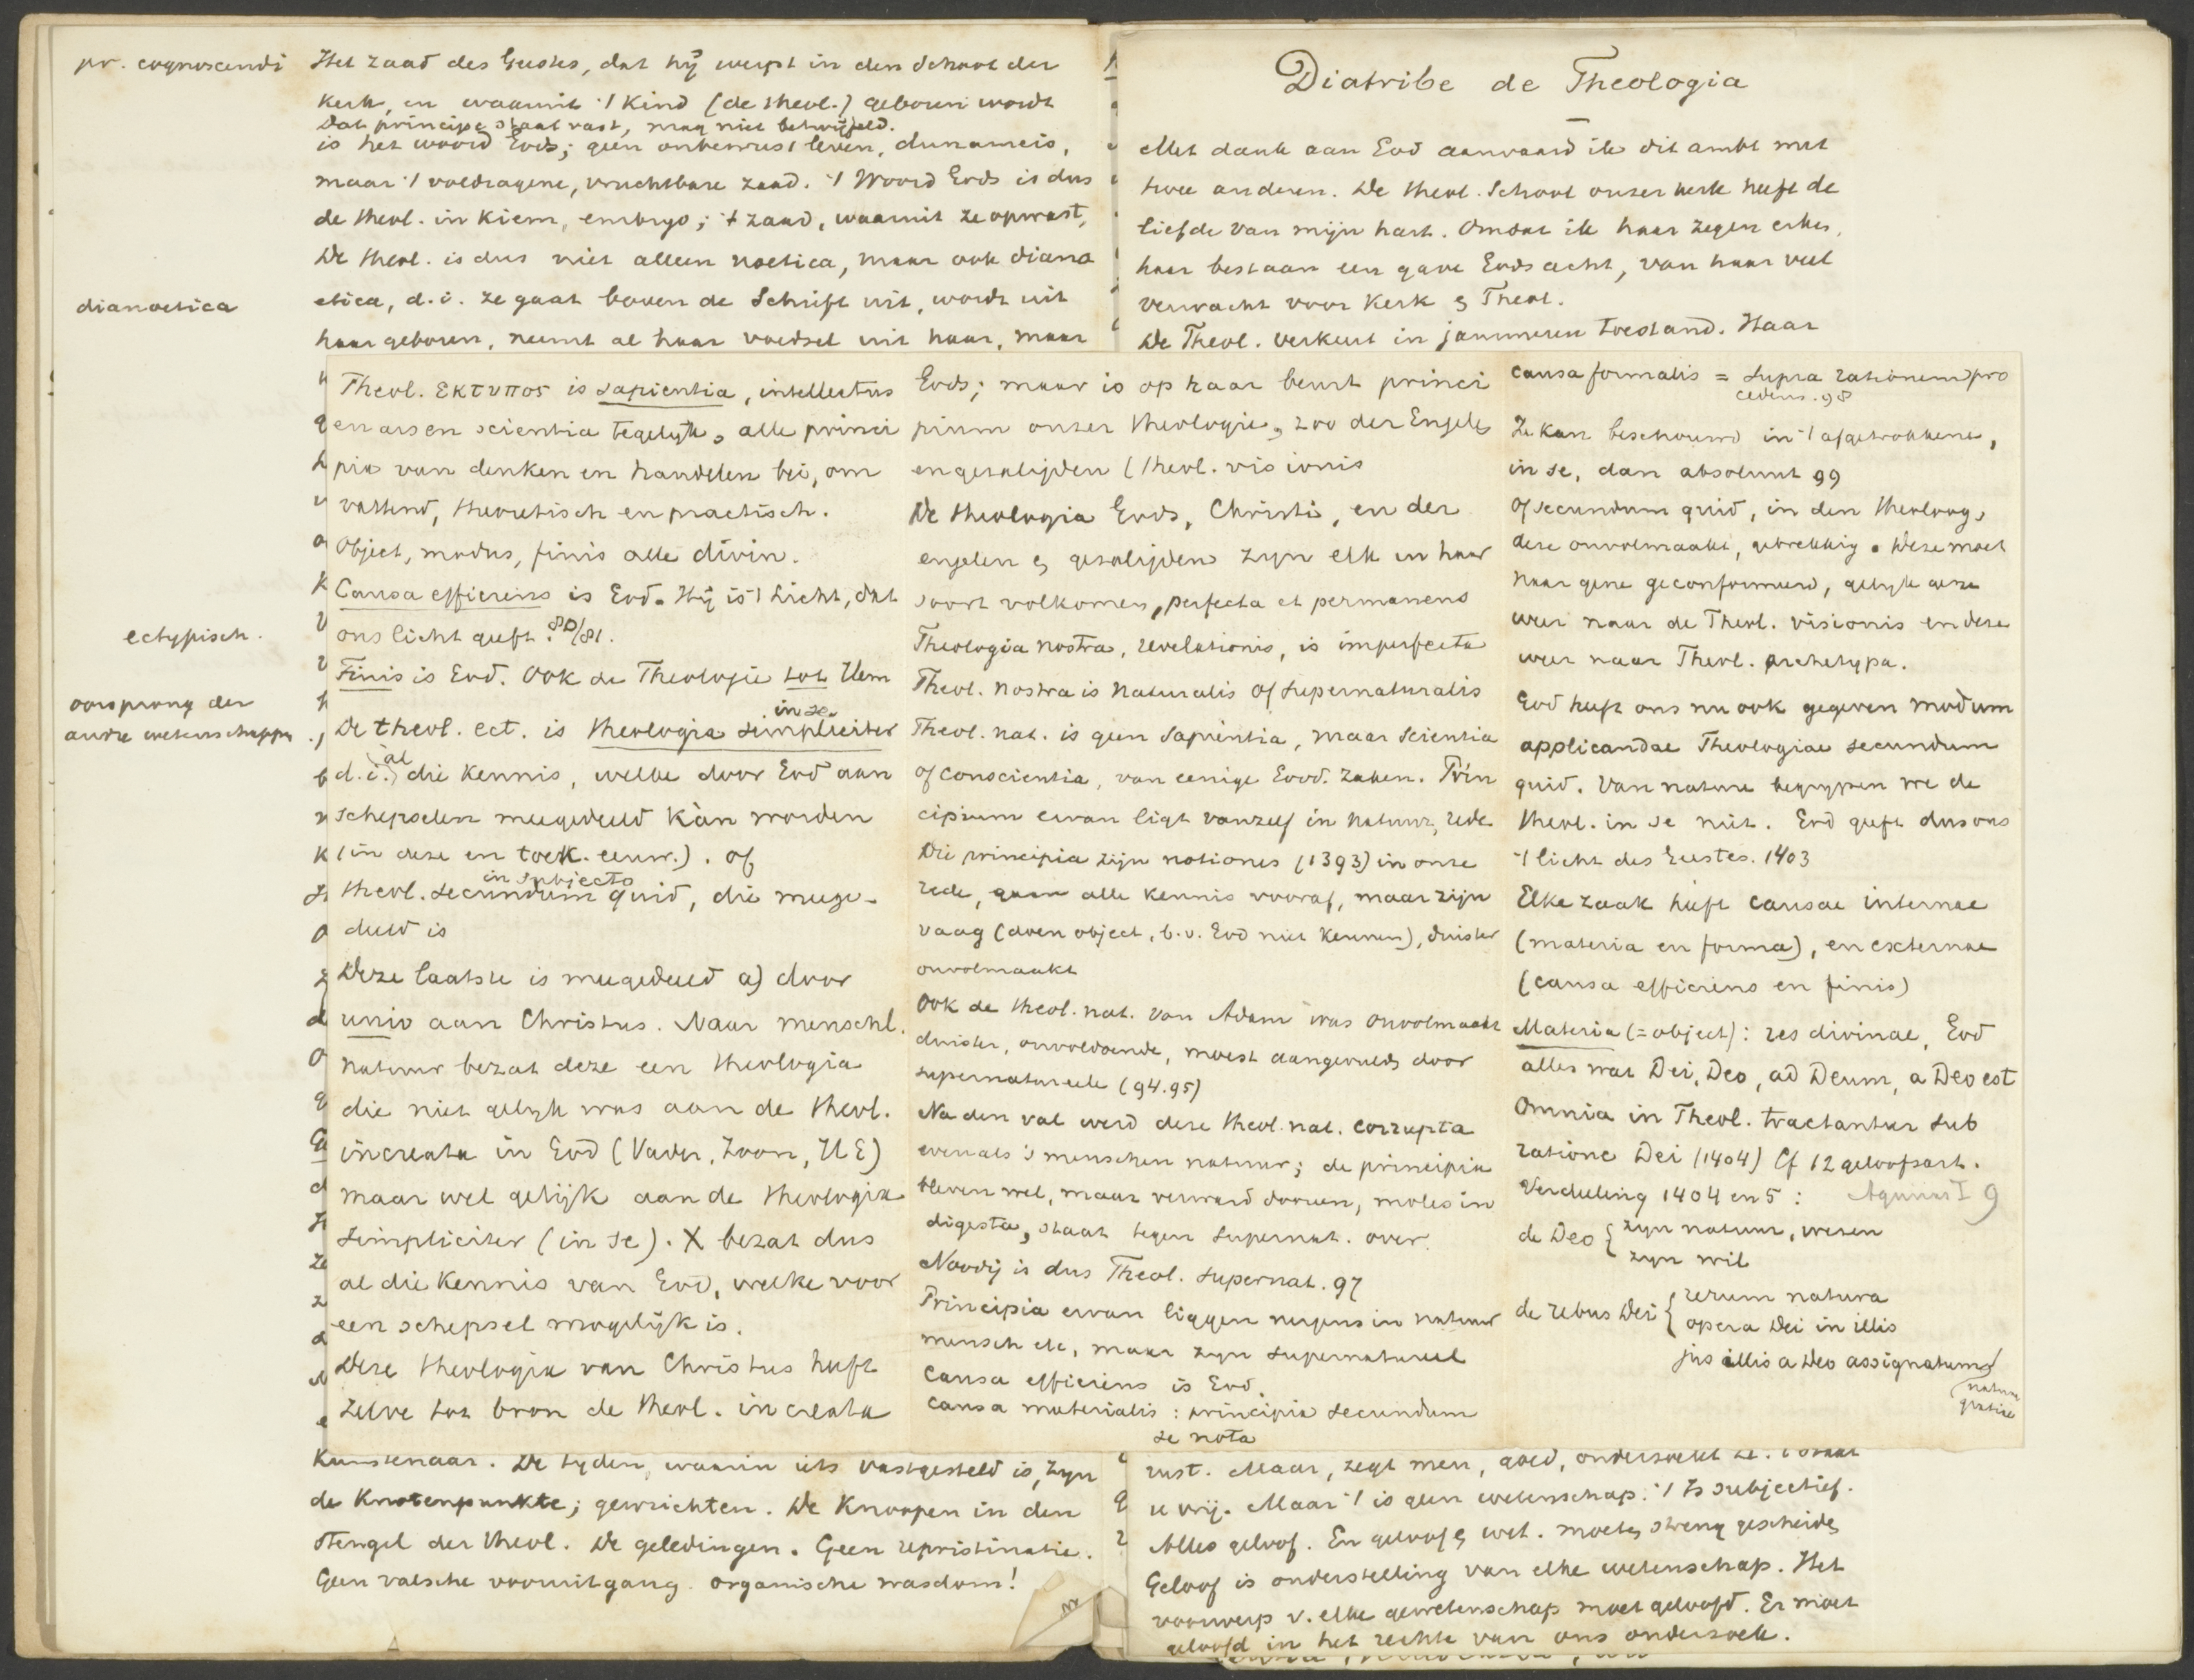 pr. cognoscendi
Het zaad des Geestes, dat hij werpt in den Schoot der
kerk, en waaruit 't kind (de theol.) geboren wordt
Dat principe staat vast, mag niet betwijfeld.
is het woord Gods; geen onbewust leven, dunameis,
maar 't voldragene, vruchtbare zaad. 't Woord Gods is dus
de theol. in kiem, embryo; 't zaad, waaruit ze opwast,
De theol. is dus niet alleen noetica, maar ook diano
dianoetica
etica, d.i. ze gaat boven de Schrift uit, wordt uit
haar geboren, neemt al haar voedsel uit haar, maar
ectypisch.
oorsprong der
andre wetenschappen
Theol. εκτυπος is sapientia, intellectus
en ars en scientia tegelijk, alle princi
pia van denken en handelen bei, om
vattend, theoretisch en practisch.
Object, modus, finis alle divin.
Causa efficiens is God. Hij is 't Licht, dat
ons licht geeft. 80/81.
Finis is God. Ook de Theologie tot Hem
in se.
De theol. ect. is theologia simpliciter
d.i. al die kennis, welke door God aan
schepselen meegedeeld kàn worden
(in deze en toek. eeuw.). of
in subjecto
theol. secundum quid, die meege-
deeld is
Deze laatste is meegedeeld a) door
unio aan Christus. Naar menschl.
natuur bezat deze een theologia
die niet gelijk was aan de theol.
increata in God (Vader, Zoon, HG)
maar wel gelijk aan de theologia
simpliciter (in se). X bezat dus
al die kennis van God, welke voor
een schepsel mogelijk is.
Deze theologia van Christus heeft
zelve tot bron de theol. increata
Gods; maar is op haar beurt princi
pium onzer theologie, zoo der Engelen
en gezaligden (theol. visionis
De theologia Gods, Christi, en der
engelen en gezaligden zijn elk in haar
soort volkomen, perfecta et permanens
Theologia nostra, revelationis, is imperfecta
Theol. nostra is naturalis of supernaturalis
Theol. nat. is geen sapientia, maar scientia
of conscientia, van eenige Godd. zaken. Prin
cipium ervan ligt vanzelf in natuur, rede
Die principia zijn notiones (1393) in onze
rede, gaan alle kennis vooraf, maar zijn
vaag (doen object, b.v. God niet kennen), duister
onvolmaakt
Ook de theol. nat. van Adam was onvolmaakt
duister, onvoldoende, moest aangevuld door
supernatureele (94.95)
Na den val werd deze theol. nat. corrupta
evenals 's menschen natuur; de principia
bleven wel, maar verward dooreen, moles in
digesta, staat tegen supernat. over.
Noodig is dus Theol. supernat. 97
Principia ervan liggen nergens in natuur
mensch etc, maar zijn supernatureel
Causa efficiens is God.
Causa materialis : principia secundum
se nota
causa formalis = supra rationem pro
cedens. 98
Ze kan beschouwd in 't afgetrokkene,
in se, dan absoluut 99
of secundum quid, in den theoloog,
deze onvolmaakt, gebrekkig. Deze moet
naar gene geconformeerd, gelijk deze
weer naar de Theol. visionis en deze
weer naar Theol. archetypa.
God heeft ons nu ook gegeven modum
applicandae Theologiae secundum
quid. Van nature begrijpen we de
theol. in se niet. God geeft dus ons
't licht des Geestes. 1403
Elke zaak heeft causae internae
(materia en forma), en externae
(causa efficiens en finis)
Materia (=object): res divinae, God
alles wat Dei, Deo, ad Deum, a Deo est
Omnia in Theol. tractantur sub
ratione Dei (1404) Cf 12 geloofsart.
Verdeeling 1404 en 5 : Aquinas I 9
de Deo { zijn natuur, wezen
zijn wil
de rebus Dei { rerum natura
opera Dei in illis
jus illis a Deo assignatum
natura
gratiae
kunstenaar. De tijden, waarin iets vastgesteld is, zijn
de Knotenpunkte; gewrichten. De Knoopen in den
stengel der theol. De geledingen. Geen repristinatie.
Geen valsche vooruitgang. organische wasdom!
Diatribe de Theologia
Met dank aan God aanvaard ik dit ambt met
twee anderen. De theol. School onzer kerk heeft de
liefde van mijn hart. Omdat ik haar zegen erken,
haar bestaan een gave Gods acht, van haar veel
verwacht voor Kerk en Theol.
De Theol. verkeert in jammeren toestand. Haar
rust. Maar, zegt men, goed, onderzoekt ze. 't staat
u vrij. Maar 't is geen wetenschap. 't Is subjectief.
Alles geloof. En geloof en wet. moeten streng gescheiden
Geloof is onderstelling van elke wetenschap. Het
voorwerp v. elke wetenschap moet geloofd. Er moet
geloofd in het rechte van ons onderzoek.